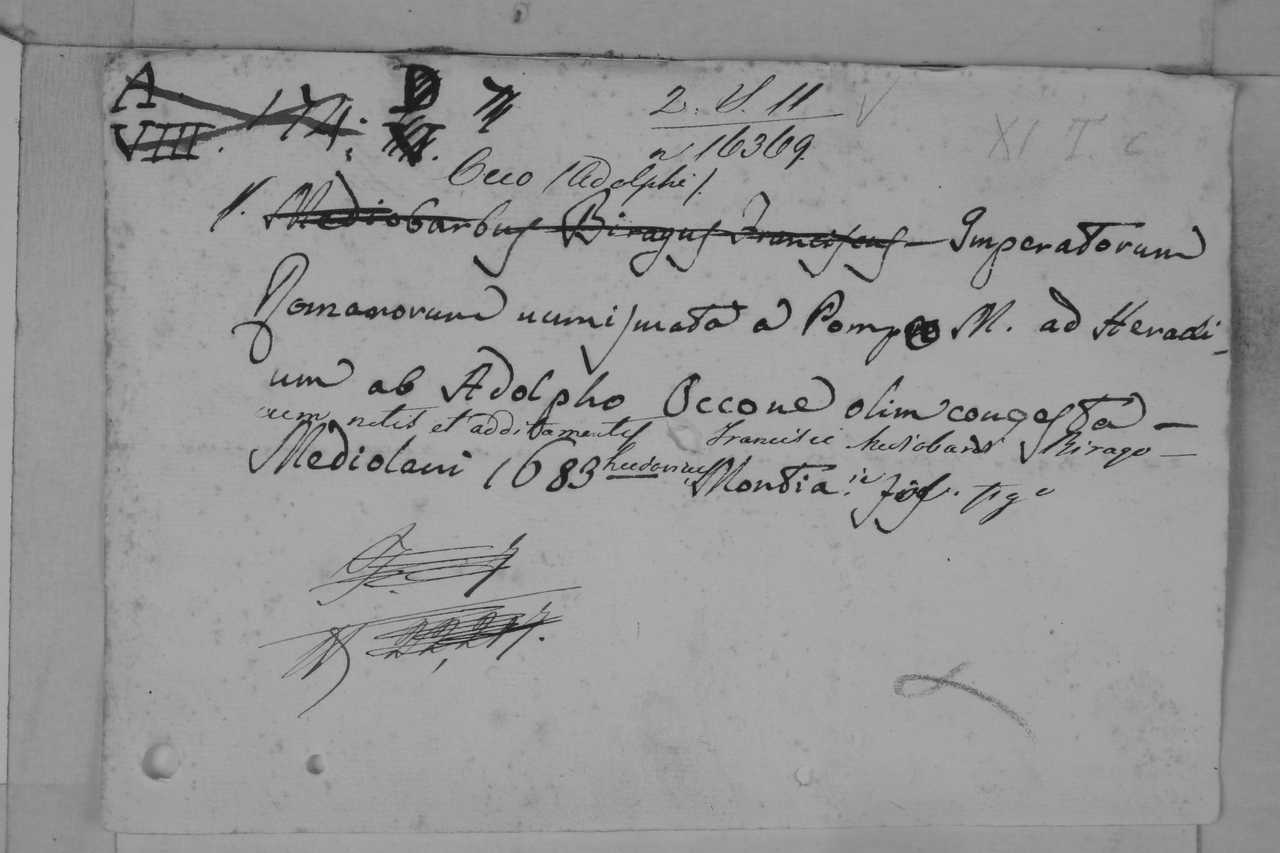 A. 174. D
VIII.
2. S. 11
n 16369.
XI I. c
Occo (Adolphi).
Mediobarbus Biragus Franciscus Imperatorum
Romanorum numismata a Pompeo M. ad Heracli-
um ab Adolpho Occone olim congesta
cum notis et additamentis Francisci Mediobarbi Birago
Mediolani 1683 Ludovicus Montia in fol.